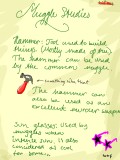 Muggle Studies
Hammer: Tool used to build
things. (Mostly made of
The hammer can be used
by the common muggle.
Looking like that
The hammer can
also be used as an
excellent murder
Sun glasses: used by
muggles when
sun. Is also
considered as cool
for some.